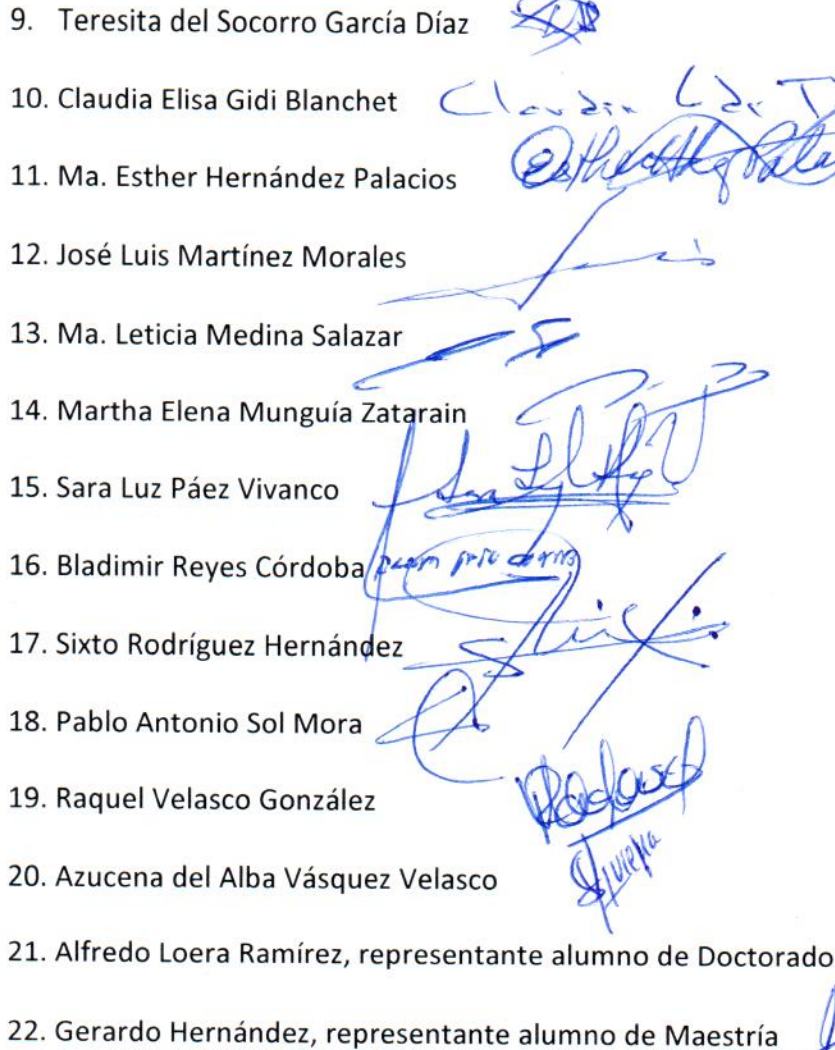 9. Teresita del Socorro García Díaz
10. Claudia Elisa Gidi Blanchet
Claudia
11. Ma. Esther Hernández Palacios
12. José Luis Martínez Morales
13. Ma. Leticia Medina Salazar
14. Martha Elena Munguía Zatarain
15. Sara Luz Páez Vivanco
16. Bladimir Reyes Córdoba
17. Sixto Rodríguez Hernández
18. Pablo Antonio Sol Mora
19. Raquel Velasco González
20. Azucena del Alba Vásquez Velasco
21. Alfredo Loera Ramírez, representante alumno de Doctorado
22. Gerardo Hernández, representante alumno de Maestría